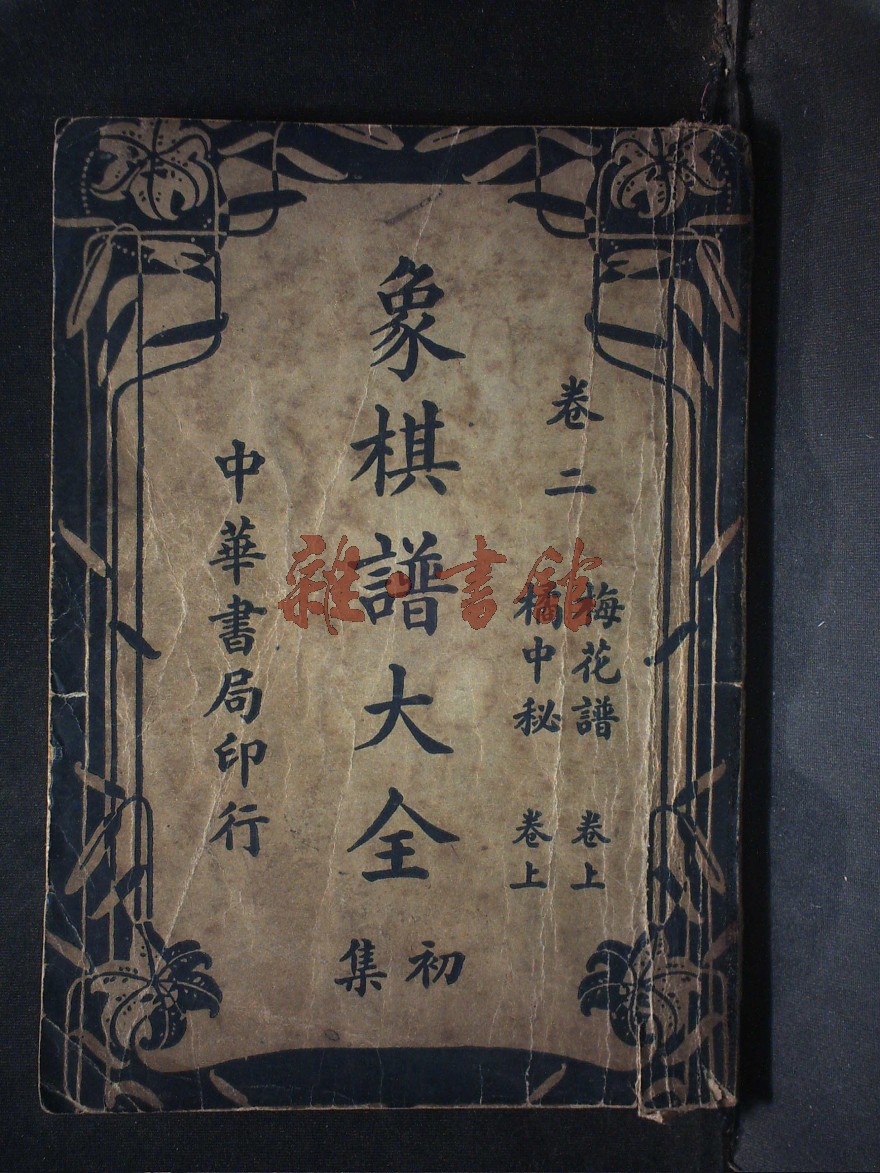 卷二
梅花譜 卷上
橘中秘 卷上
象棋譜大全
初集
中華書局印行
雜·書館